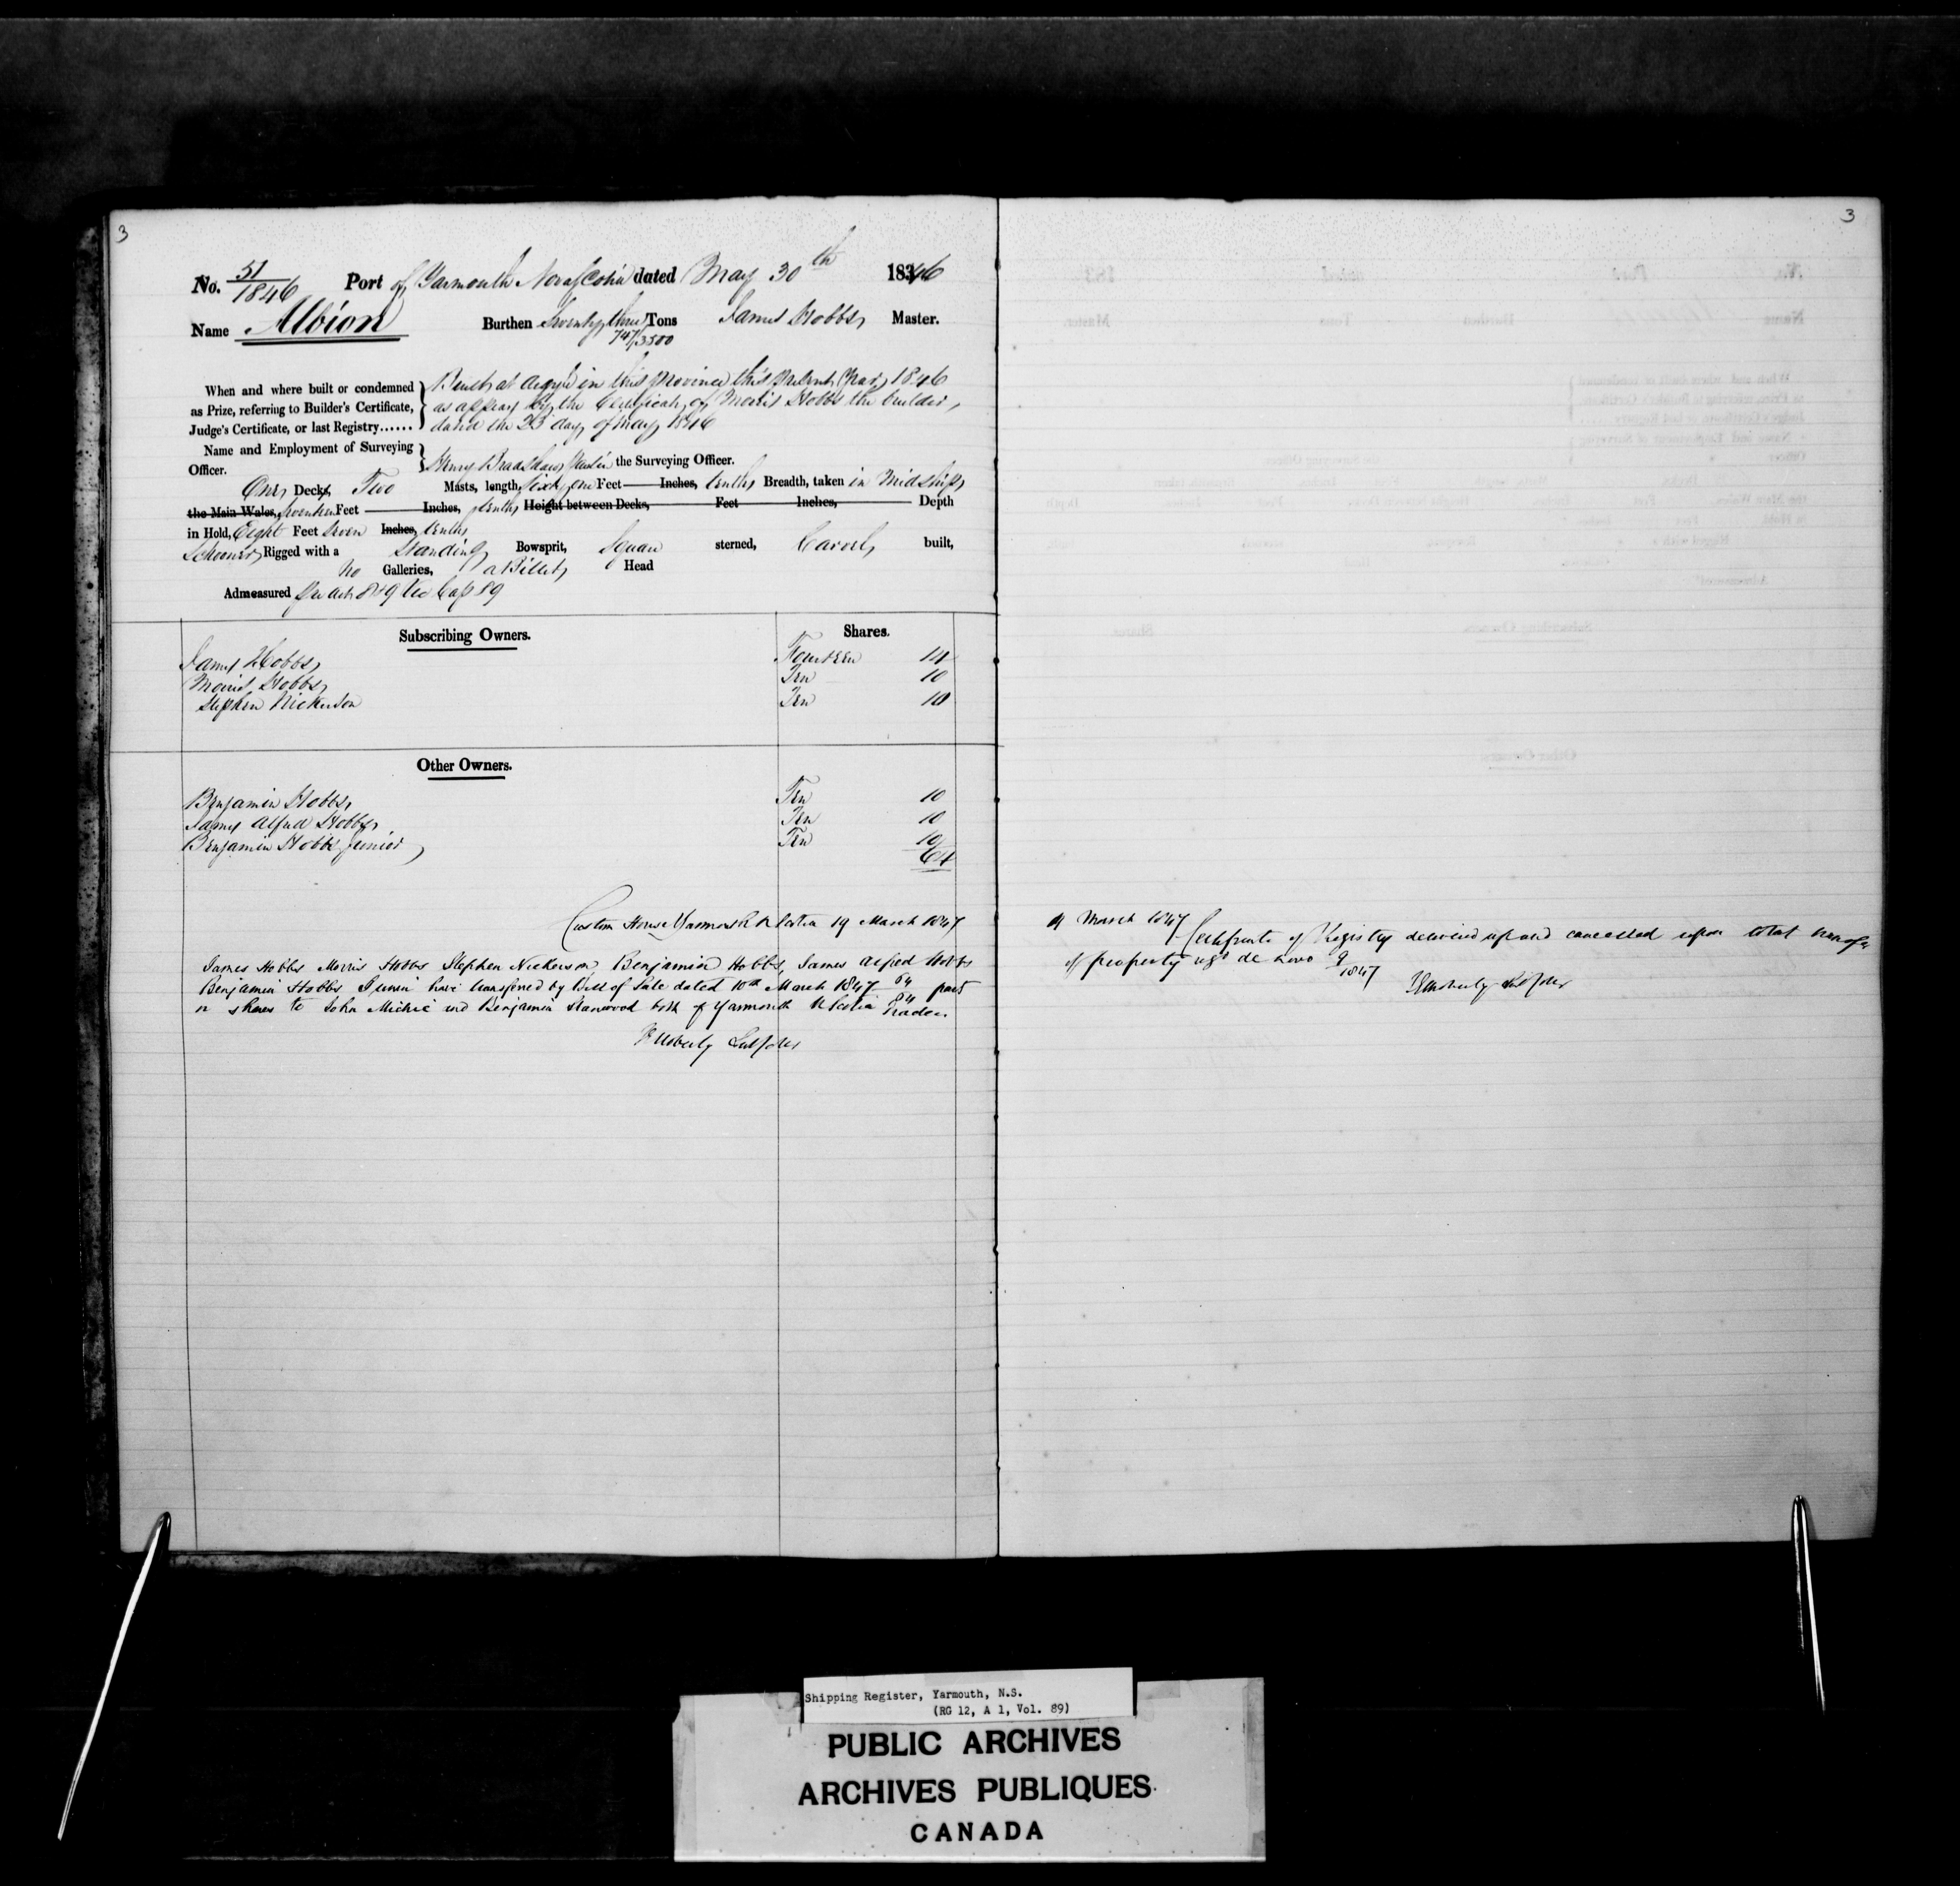 3
3
No. 51/1846 Port of Yarmouth Nova Scotia dated May 30th 1846
Name Albion Burthen Seventy three Tons James Hobbs Master.
747/3500
When and where built or condemned
as Prize, referring to Builder's Certificate,
Judge's Certificate, or last Registry......
Built at Argyle in this Province this present Year 1846
as appears by the Certificate of Morris Hobbs the builder,
dated the 23 day of May 1846
Name and Employment of Surveying
Officer.
Henry Bradshaw the Surveying Officer.
One Deck Two Masts, length, Sixty one Feet Inches, tenths Breadth, taken in Midships
the Main Wales, Seventeen Feet Inches, tenths Height between Decks, Feet Inches, Depth
in Hold, Eight Feet Seven Inches, tenths
Schooner Rigged with a Standing Bowsprit, Square sterned, Carvel built,
No Galleries, a Billet Head
Admeasured per Act 8 & 9 Vic Cap 89
Subscribing Owners. Shares.
James Hobbs Fourteen 14
Morris Hobbs Ten 10
Stephen Nickerson Ten 10
Other Owners.
Benjamin Hobbs Ten 10
James Alfred Hobbs Ten 10
Benjamin Hobbs Junior Ten 10
64
Custom House Yarmouth N Scotia 19 March 1847
James Hobbs Morris Hobbs Stephen Nickerson, Benjamin Hobbs, James Alfred Hobbs
Benjamin Hobbs Junior have transferred by Bill of Sale dated 10th March 1847 64/64 parts
or shares to John Michie and Benjamin Stanwood both of Yarmouth N Scotia Traders.
March 1847 Certificate of Registry delivered up and cancelled upon total transfer
of property regd de novo 9/1847
Shipping Register, Yarmouth, N.S.
(RG 12, A 1, Vol. 89)
PUBLIC ARCHIVES
ARCHIVES PUBLIQUES
CANADA